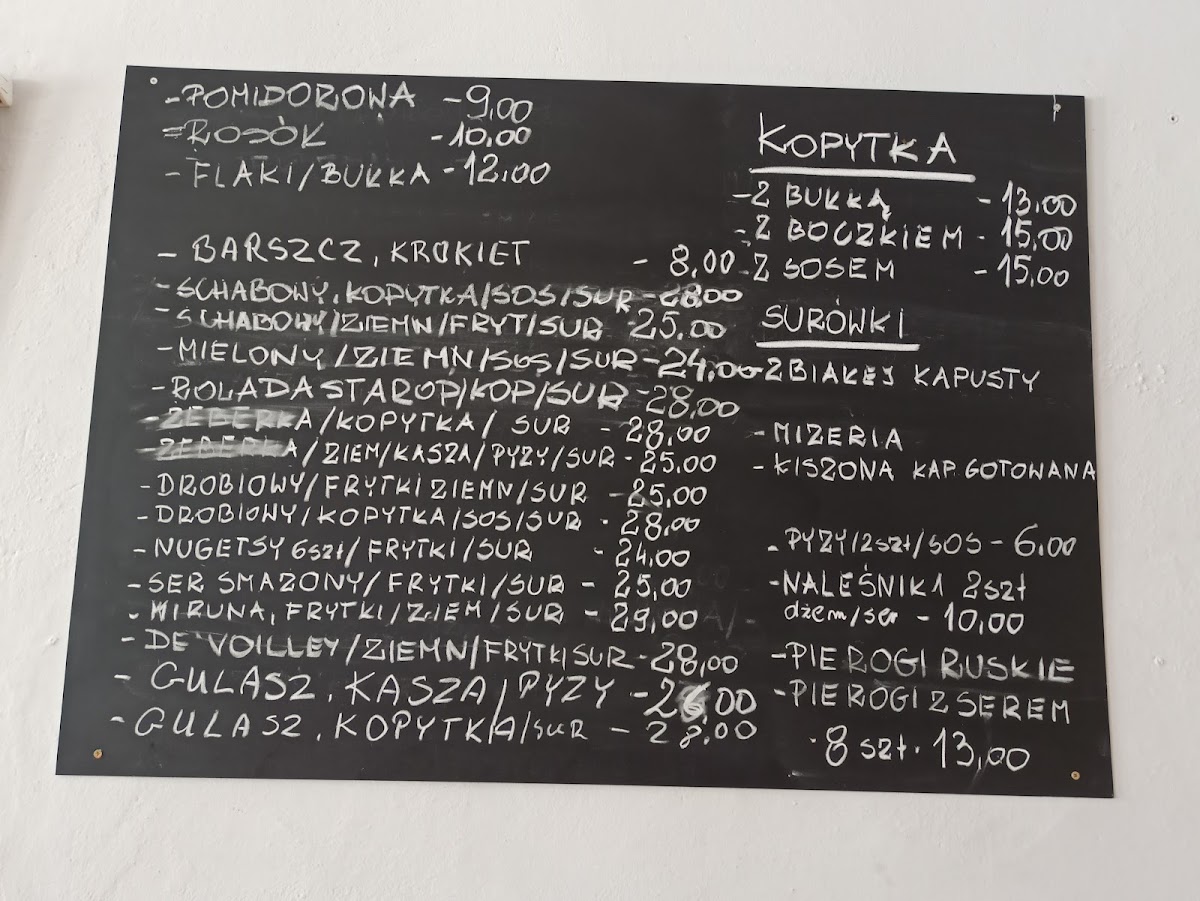 -POMIDOROWA -9,00
-ROSÓŁ -10,00
-FLAKI/BUŁKA -12,00
- BARSZCZ, KROKIET - 8,00
-SCHABOWY, KOPYTKA/SOS/SUR -28,00
-SCHABOWY/ZIEMN/FRYT/SUR 25,00
-MIELONY/ZIEMN/SOS/SUR -24,00
-ROLADA STAROP/KOP/SUR -28,00
-ŻEBERKA/KOPYTKA/ SUR - 28,00
-ŻEBERKA/ZIEM/KASZA/PYZY/SUR - 25,00
-DROBIOWY/FRYTKI ZIEMN/SUR - 25,00
-DROBIOWY/KOPYTKA/SOS/SUR - 28,00
-NUGETSY 6szt/FRYTKI/SUR - 24,00
-SER SMAŻONY/FRYTKI/SUR - 25,00
- WIRUNA, FRYTKI/ZIEM/SUR - 29,00
- DE VOILLEY/ZIEMN/FRYTKI SUR -28,00
- GULASZ, KASZA/PYZY -26,00
- GULASZ, KOPYTKA/SUR - 28,00
KOPYTKA
-Z BUŁKĄ - 13,00
-Z BOCZKIEM - 15,00
-Z SOSEM - 15,00
SURÓWKI
-Z BIAŁEJ KAPUSTY
-MIZERIA
-KISZONA KAP. GOTOWANA
- PYZY/2szt/SOS - 6,00
-NALEŚNIKI 2szt
dżem/ser - 10,00
-PIEROGI RUSKIE
-PIEROGI Z SEREM
- 8 szt. 13,00